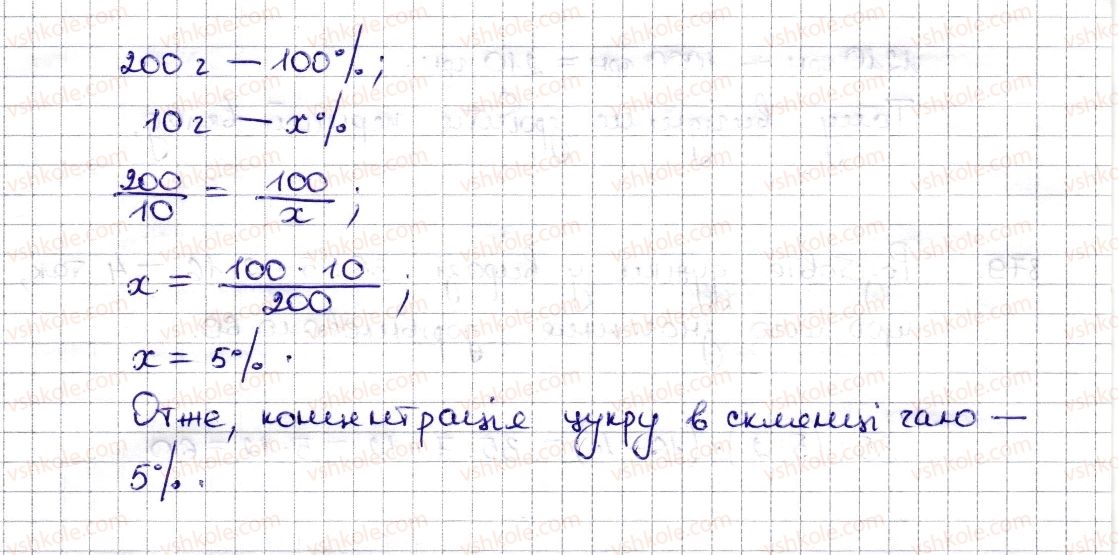 200 г — 100%;
10 г — x%
200/10 = 100/x;
x = 100 · 10/200;
x = 5%.
Отже, концентрація цукру в склянці чаю —
5%.